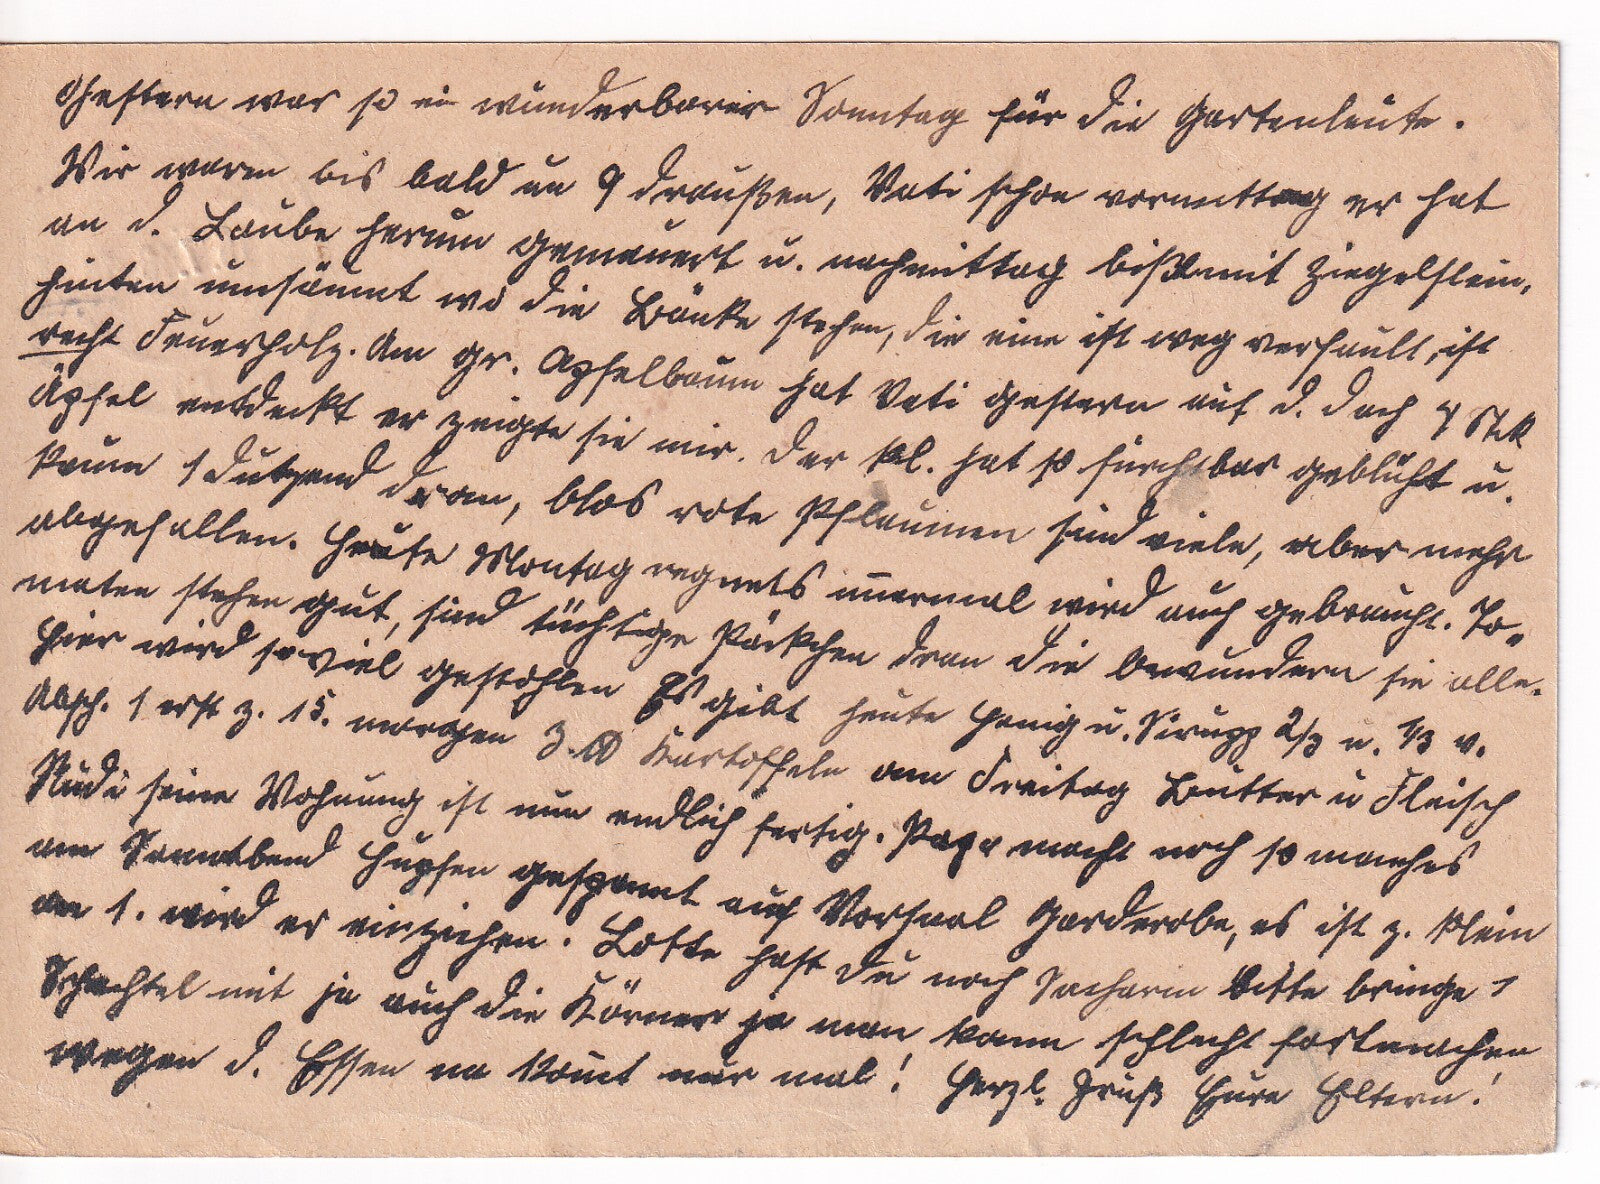 Gestern war so ein wunderbarer Sonntag für die Gartenleute.
Wir waren bis bald um 9 draußen, Vati schon vormittag er hat
an d. Laube herum gemauert u. nachmittag mit Ziegelstein,
hinten umsäumt wo die Bänke stehen, die eine ist weg verfault, ist
recht Feuerholz. Am gr. Apfelbaum hat Vati gestern auf d. Dach 4 Stck
Äpfel entdeckt er zeigte sie mir. Der kl. hat so furchtbar geblüht u.
kaum 1 Dutzend dran, blos rote Pflaumen sind viele, aber mehr
abgefallen. Heute Montag regnets immermal wird auch gebraucht. To-
maten stehen gut, sind tüchtige Päckchen dran die bewundern sie alle.
Hier wird so viel gestohlen Es gibt heute Honig u. Sirupp 2/3 u. 1/3 v.
Absch. 1 erst z. 15. morgen 3 ℔ Kartoffeln am Freitag Butter u Fleisch
Rudi seine Wohnung ist nun endlich fertig. Papa macht noch so manches
am Sonnabend gespannt auf Vorsaal Garderobe, es ist z. klein
am 1. wird er einziehen. Lotte hast du noch Sacharin bitte bringe 1
Schachtel mit ja auch die Körner ja man kann schlecht fortmachen
wegen d. Essen na komt nur mal! Herzl. Gruß Eure Eltern!